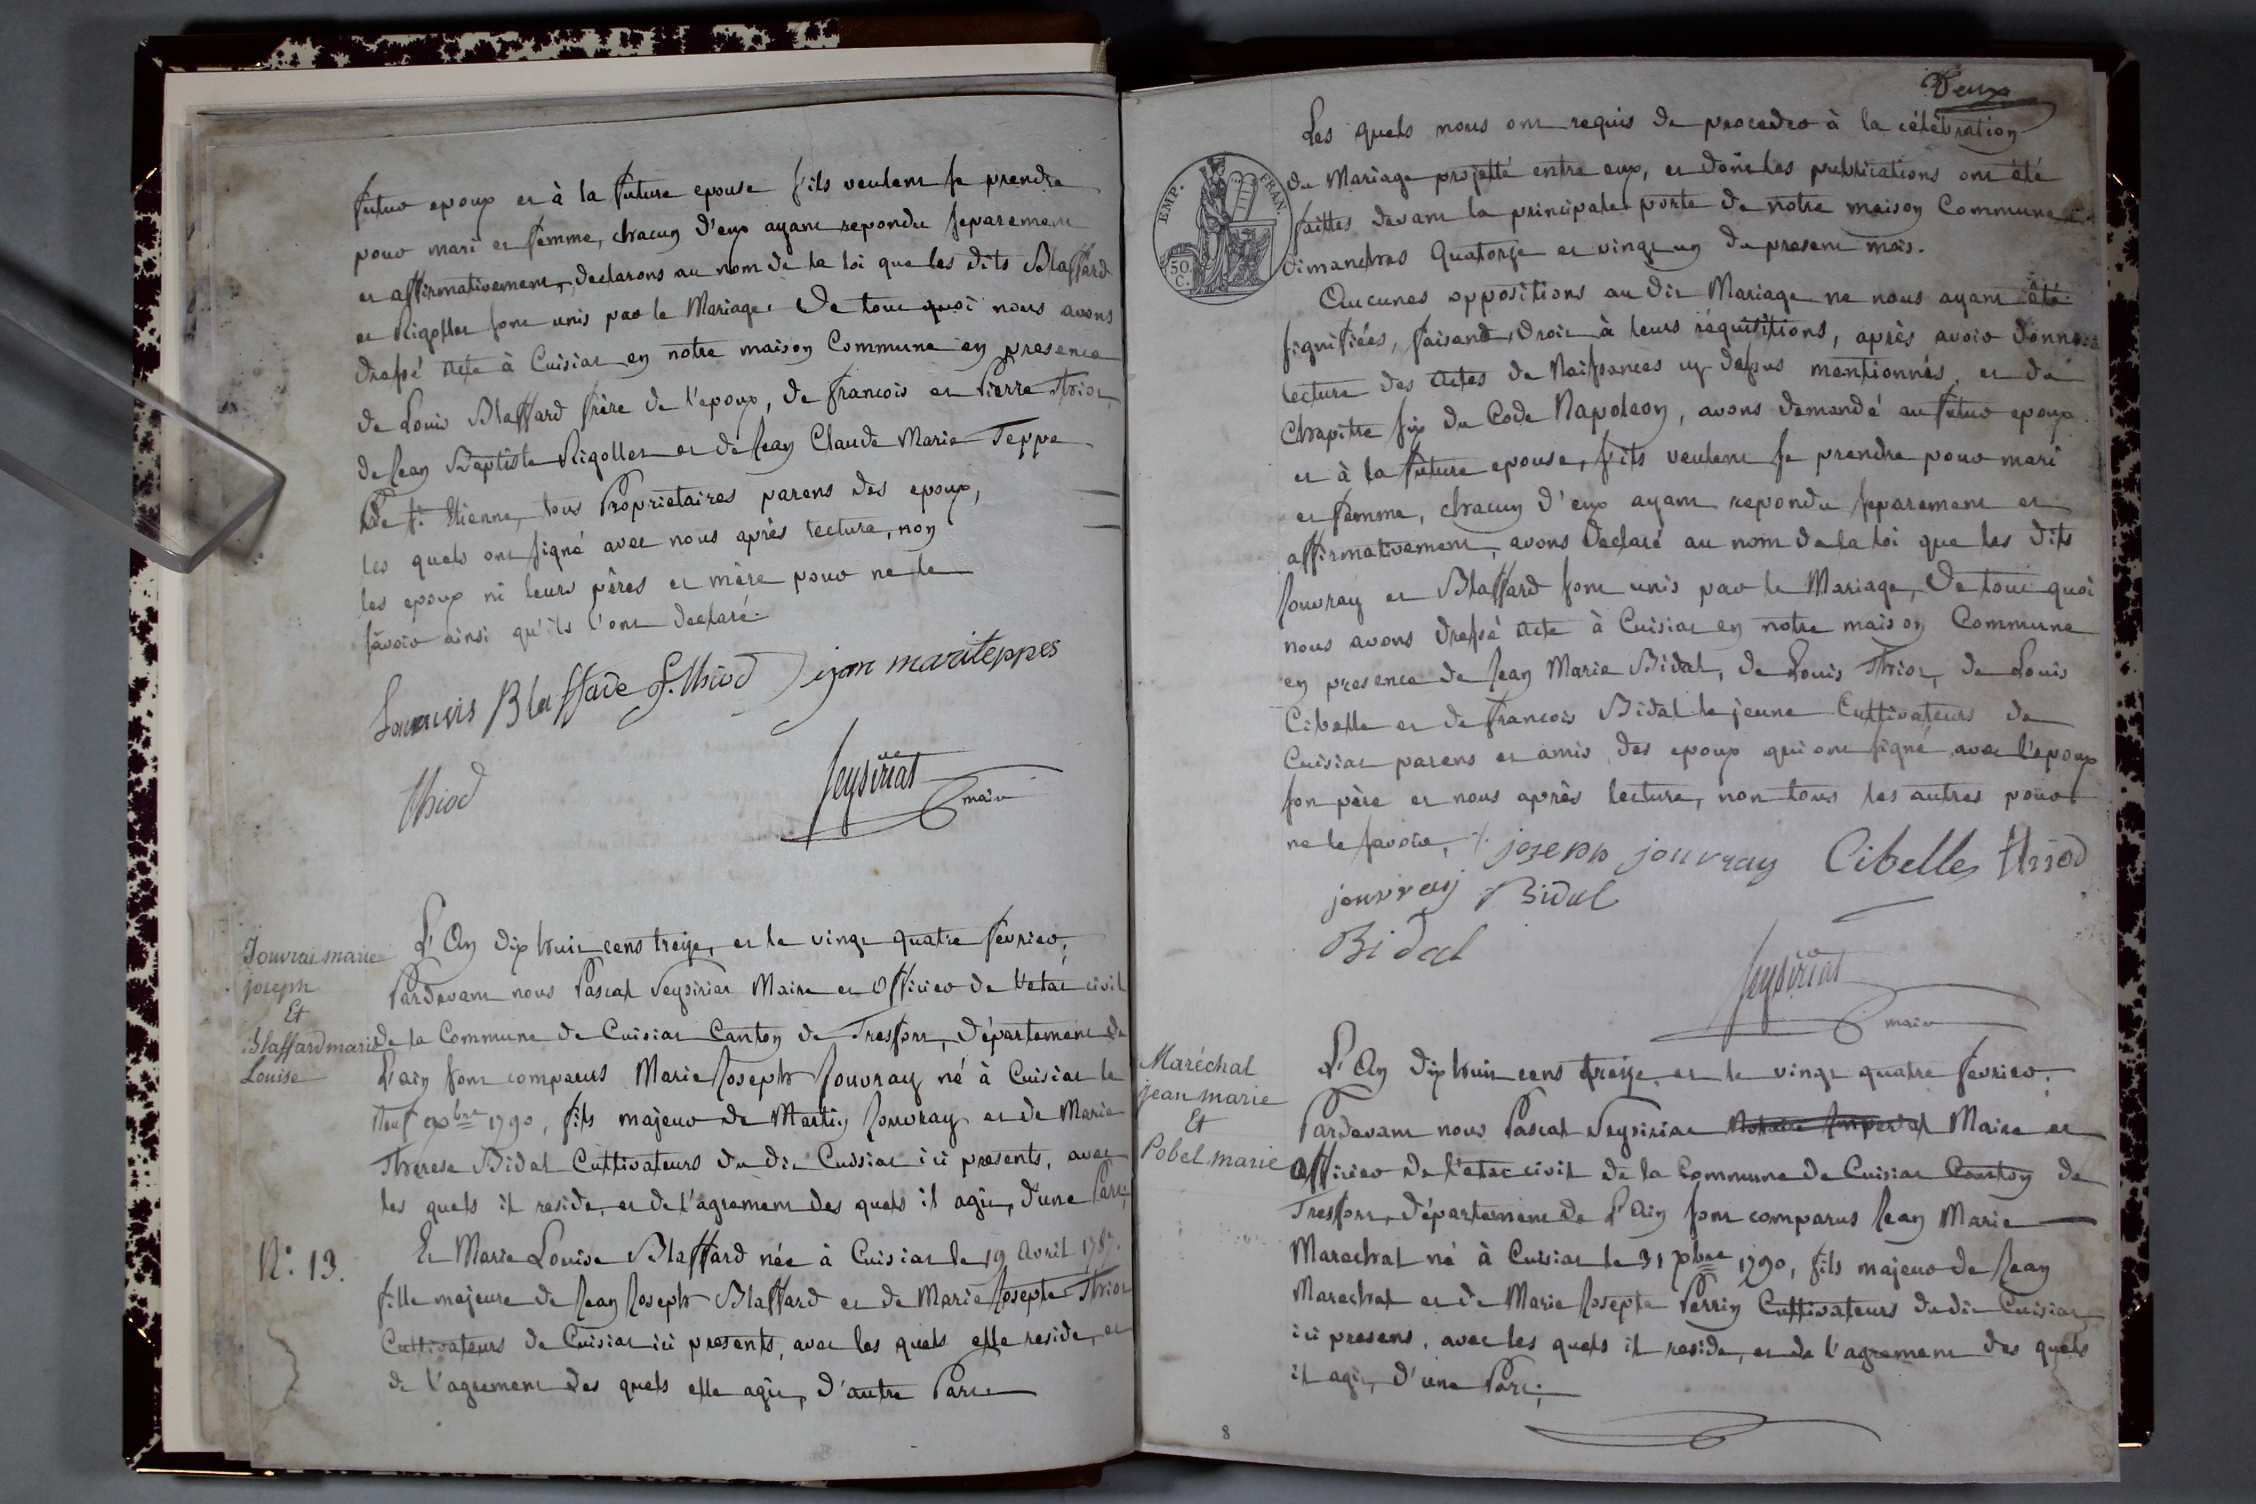 futur epoux et à la future epouse s'ils veulent se prendre
pour mari et femme, chacun d'eux ayant repondu separement
et affirmativement, declarons au nom de la loi que les dits Blaffard
et Rigollet sont unis par le Mariage. De tout quoi nous avons
dressé acte à Cuisiat en notre maison Commune en presence
de Louis Blaffard frère de l'epoux, de francois et Pierre Thiot,
de Jean Baptiste Rigollet et de Jean Claude Marie Teppe
De St. Etienne, tous Proprietaires parens des epoux,
les quels ont signé avec nous après lecture, non
les epoux ni leurs pères et mère pour ne le
savoir ainsi qu'ils l'ont declaré.
Blaffard f. thiod jan mariteppes
thiod
Veysiriat
maire
Jouvrai marie
joseph
Et
Blaffard marie
Louise
N.° 13.
L'An dix huit cens treize, et le vingt quatre fevrier,
Pardevant nous Pascal Veysiriat Maire et Officier de l'etat civil
de la Commune de Cuisiat Canton de Treffort, Département de
L'ain sont comparus Marie Joseph Jouvray né à Cuisiat le
Neuf xbre 1790, fils majeur de Martin Jouvray et de Marie
Therese Bidal Cultivateurs du dit Cuisiat ici presents, avec
les quels il reside, et de l'agrement des quels il agit, d'une Part,
Et Marie Louise Blaffard née à Cuisiat le 19 Avril 1787.
fille majeure de Jean Joseph Blaffard et de Marie Josepte Thiot
Cultivateurs de Cuisiat ici presents, avec les quels elle reside, et
de l'agrement des quels elle agit, d'autre Part
Deux
EMP. FRAN.
50
C.
Les quels nous ont requis de proceder à la célébration
du Mariage projetté entre eux, et dont les publications ont été
faittes devant la principale porte de notre maison Commune
dimanches Quatorze et vingt un du present mois.
Aucunes oppositions au dit Mariage ne nous ayant été
signifiées, faisant droit à leurs réquisitions, après avoir donné
lecture des Actes de Naissances cy dessus mentionnés, et du
Chapitre six du Code Napoleon, avons demandé au futur epoux
et à la future epouse, s'ils veulent se prendre pour mari
et femme, chacun d'eux ayant repondu separement et
affirmativement, avons Declaré au nom de la loi que les dits
Jouvray et Blaffard sont unis par le Mariage, De tout quoi
nous avons dressé acte à Cuisiat en notre maison Commune
en presence de Jean Marie Bidal, de Louis Thiot, de Louis
Cibelle et de francois Bidal le jeune Cultivateurs de
Cuisiat parens et amis des epoux qui ont signé avec l'epoux
son père et nous après lecture, non tous les autres pour
ne le savoir, joseph jouvray Cibelles thiod
jouvray Bidal
Bidal
Veysiriat
maire
Maréchal
jean marie
Et
Pobel marie
L'An dix huit cens treize, et le vingt quatre fevrier,
Pardevant nous Pascal Veysiriat Notaire Imperial Maire et
Officier de l'etat civil de la Commune de Cuisiat Canton de
Treffort, Département de L'Ain sont comparus Jean Marie
Marechal né à Cuisiat le 31 xbre 1790, fils majeur de Jean
Marechal et de Marie Josepte Perrin Cultivateurs du dit Cuisiat
ici presens, avec les quels il reside, et de l'agrement des quels
il agit, d'une Part;
8